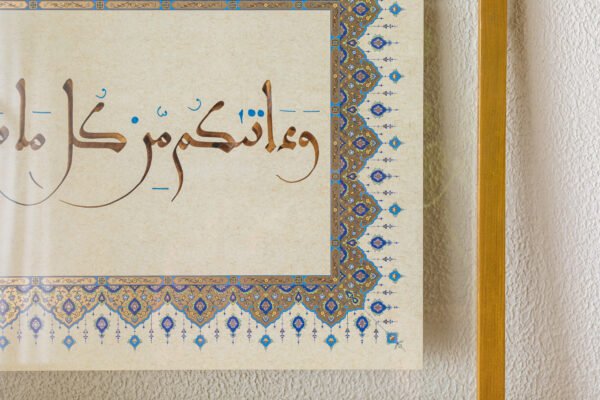 وَءَاتَىٰكُم مِّن كُلِّ مَا